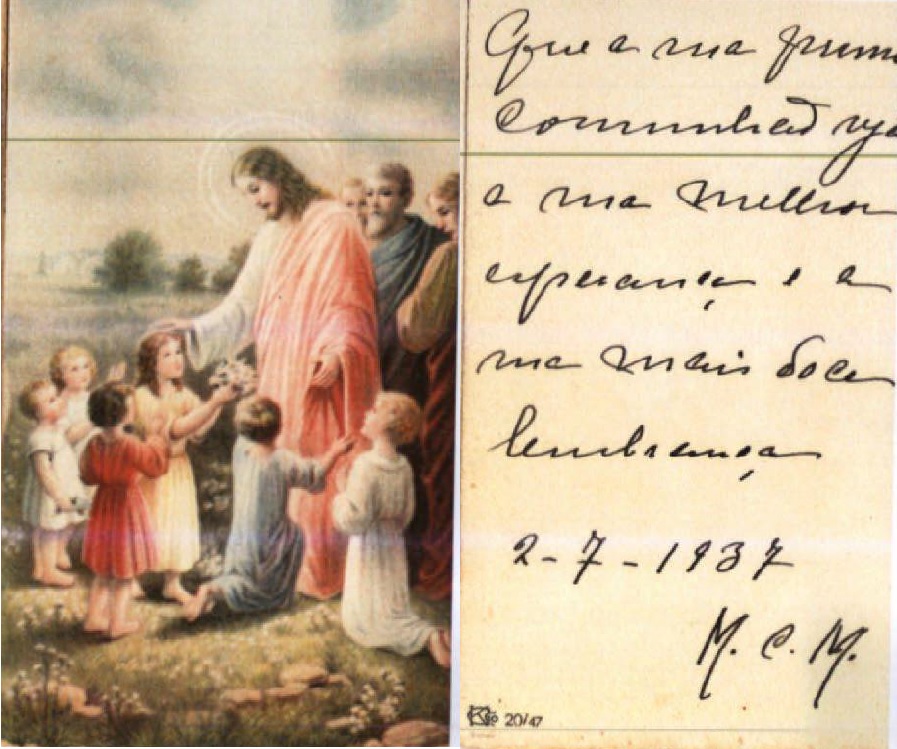 Que a sua prim
Comunhão seja
a sua melhor
esperança e a
sua mais doce
lembrança
2-7-1937
M. C. M.
20/47